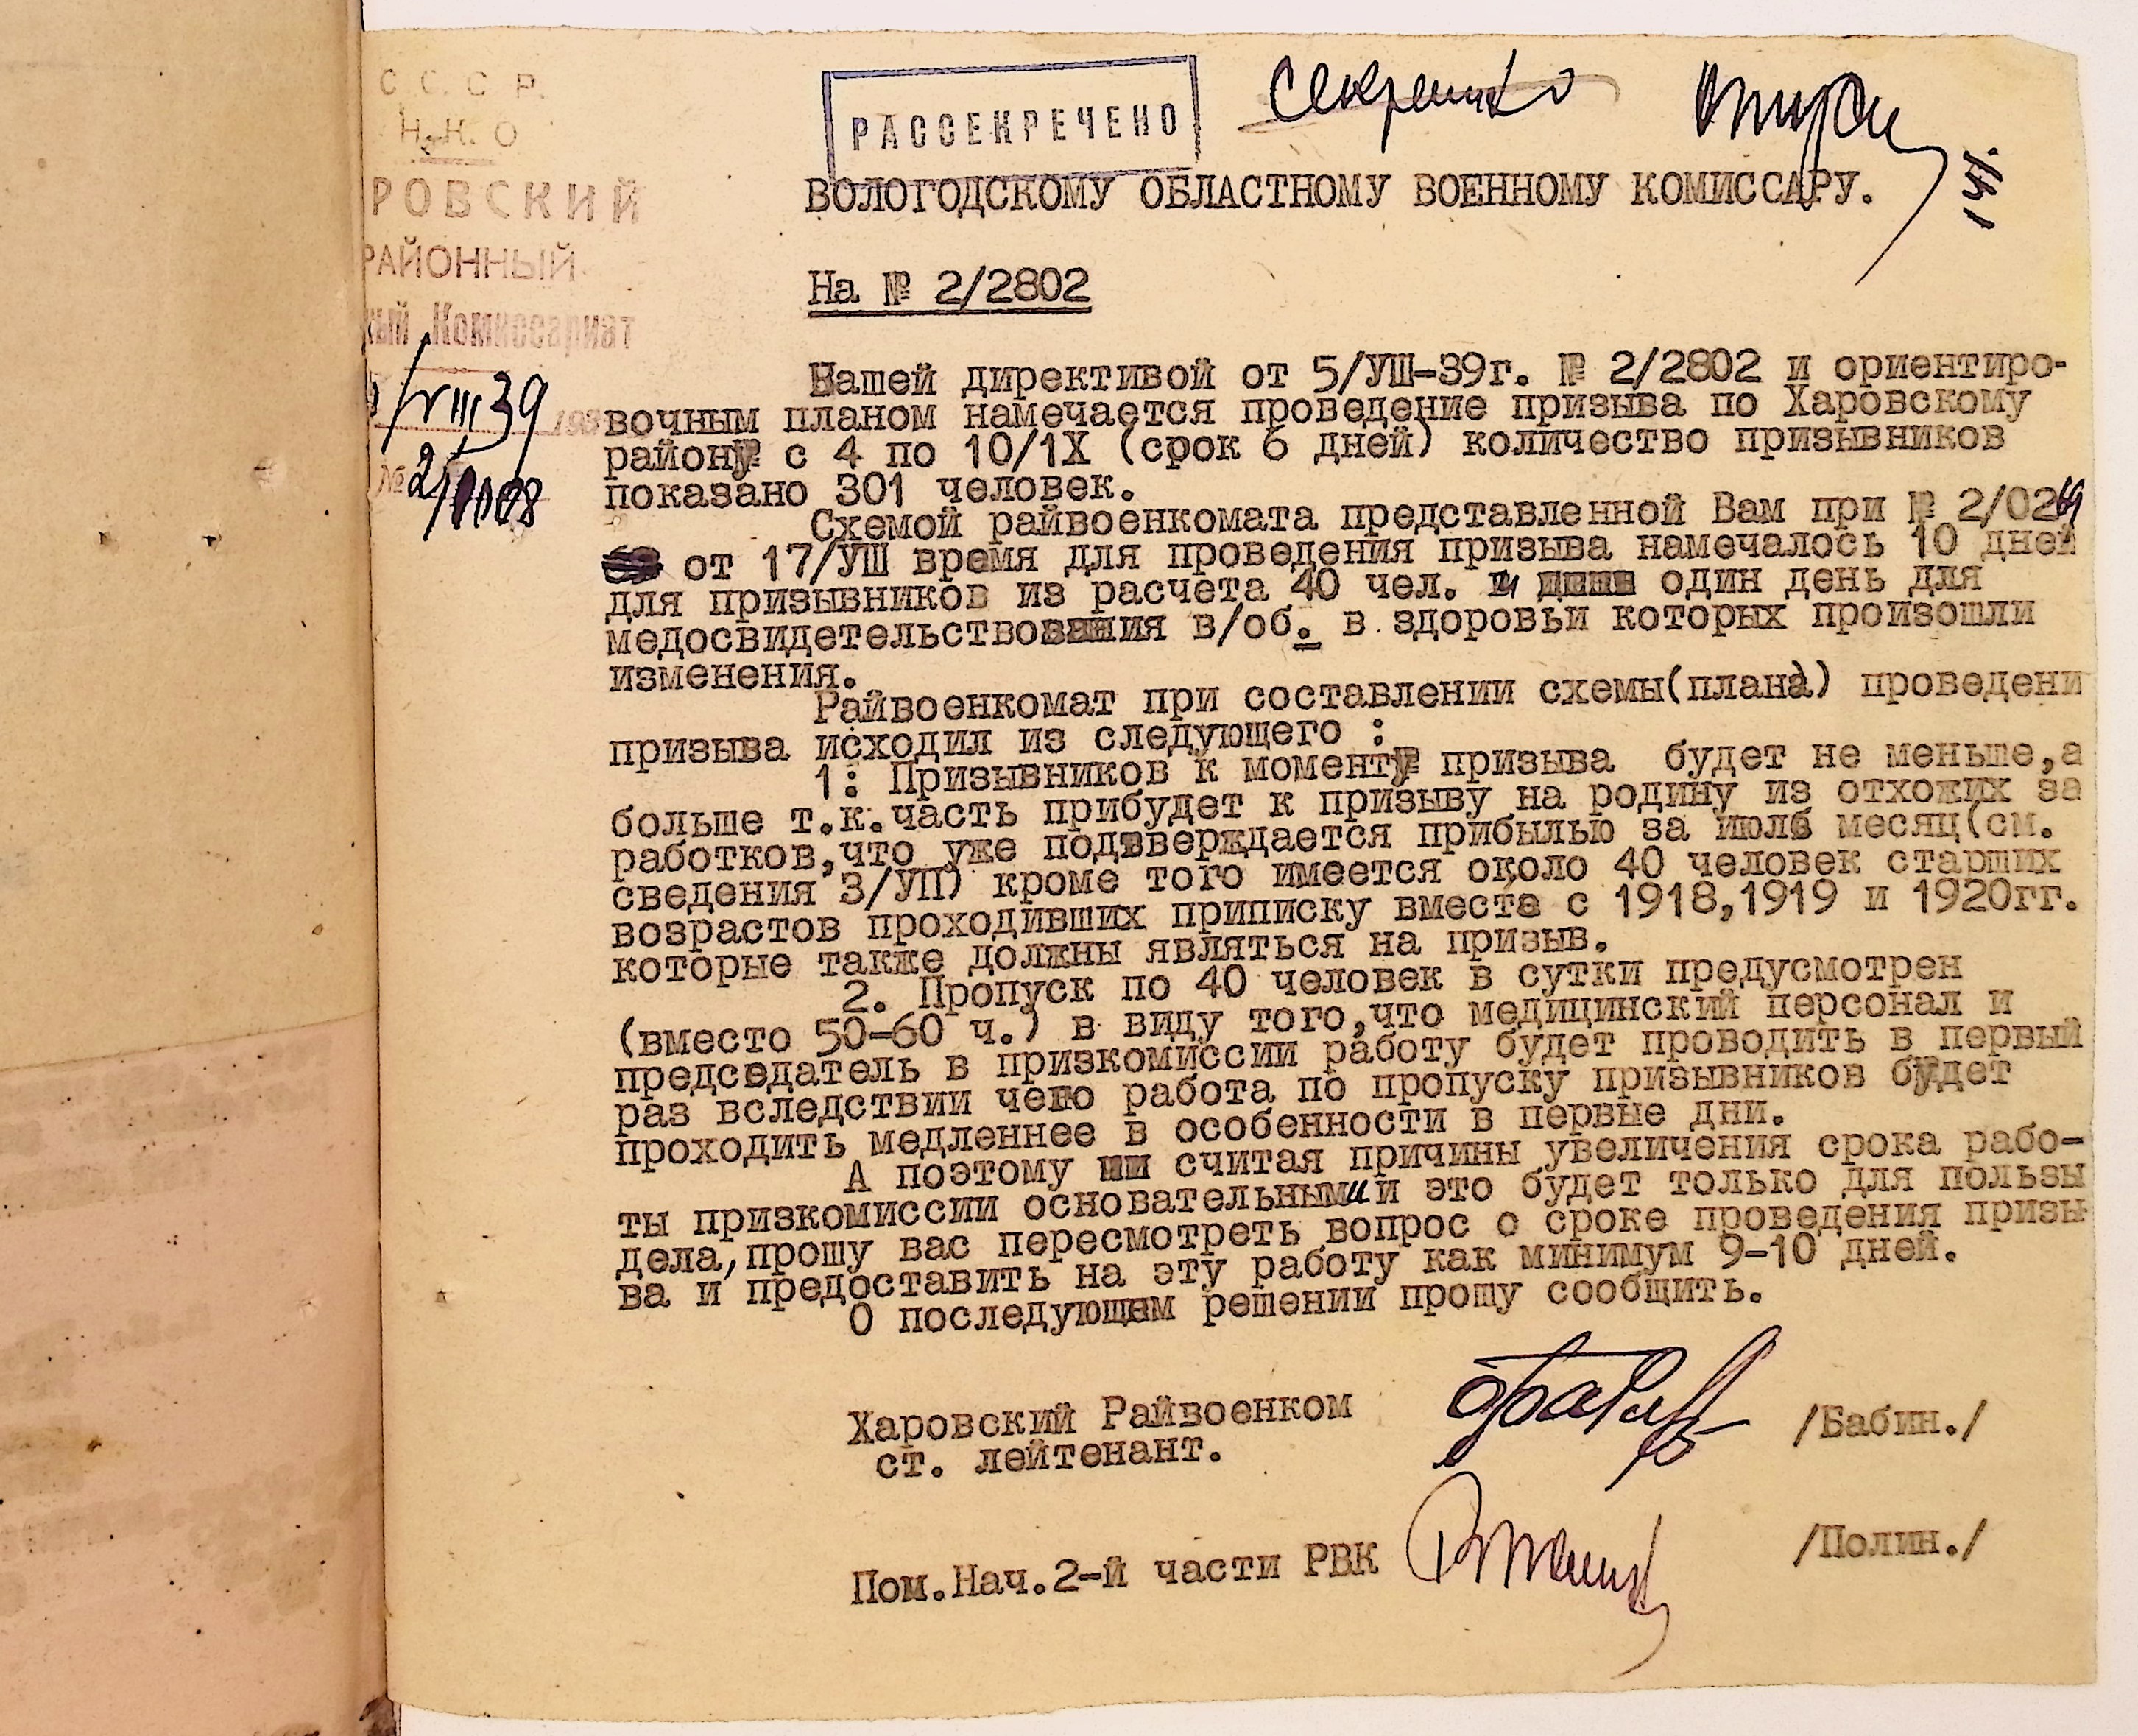 С. С. С Р.
Н. К. О
РОВСКИЙ
РАЙОННЫЙ
ный Комиссариат
/VIII 39
№ 2/
РАССЕКРЕЧЕНО
Секретно
ВОЛОГОДСКОМУ ОБЛАСТНОМУ ВОЕННОМУ КОМИССАРУ.
На № 2/2802
Вашей директивой от 5/УШ-39г. № 2/2802 и ориентиро-
вочным планом намечается проведение призыва по Харовскому
району с 4 по 10/1Х (срок 6 дней) количество призывников
показано 301 человек.
Схемой райвоенкомата представленной Вам при № 2/0269
от 17/УШ время для проведения призыва намечалось 10 дней
для призывников из расчета 40 чел. и один день для
медосвидетельствования в/об. в здоровьи которых произошли
изменения.
Райвоенкомат при составлении схемы(плана) проведени
призыва исходил из следующего :
1: Призывников к моменту призыва будет не меньше,а
больше т.к.часть прибудет к призыву на родину из отхожих за
работков,что уже подтверждается прибылью за июль месяц(см.
сведения 3/УП) кроме того имеется около 40 человек старших
возрастов проходивших приписку вместе с 1918,1919 и 1920гг.
которые также должны являться на призыв.
2. Пропуск по 40 человек в сутки предусмотрен
(вместо 50-60 ч.) в виду того,что медицинский персонал и
председатель в призкомиссии работу будет проводить в первый
раз вследствии чего работа по пропуску призывников будет
проходить медленнее в особенности в первые дни.
А поэтому считая причины увеличения срока рабо-
ты призкомиссии основательными и это будет только для пользы
дела,прошу вас пересмотреть вопрос о сроке проведения призы-
ва и предоставить на эту работу как минимум 9-10 дней.
О последующем решении прошу сообщить.
Харовский Райвоенком
ст. лейтенант.
/Бабин./
Пом.Нач.2-й части РВК
/Полин./